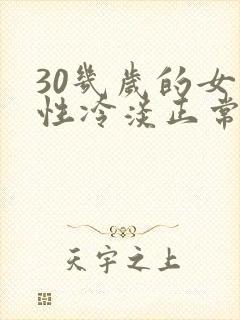 30幾歲的女
性冷淡正常
天宇之上